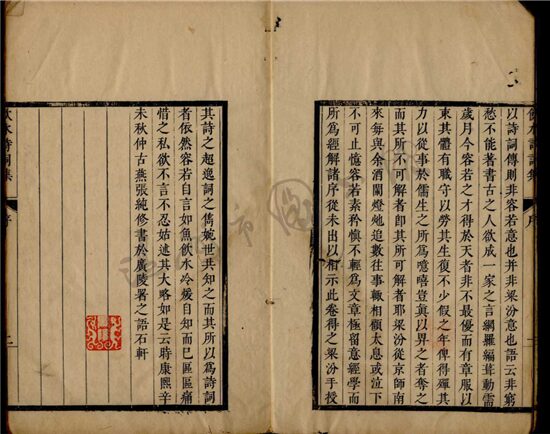 飲水詩詞集
序
以詩詞傳則非容若意也并非梁汾意也語云非窮
愁不能著書古之人欲成一家之言網羅編葺動需
歲月今容若之才得於天者非不最優而有章服以
束其體有職守以勞其生復不少假之年俾得殫其
力以從事於儒生之所爲噫嘻豈眞以畀之者奪之
而其所不可解者即其所可解者耶梁汾從京師南
來每與余酒闌燈灺追數往事輒相顧太息或泣下
不可止憶容若素矜慎不輕爲文章極留意經學而
所爲經解諸序從未出以相示此卷得之梁汾手授
其詩之超逸詞之雋婉世共知之而其所以爲詩詞
者依然容若自言如魚飲水冷煖自知而已區區痛
惜之私欲不言不忍姑述其大略如是云時康熙辛
未秋仲古燕張純修書於廣陵署之語石軒
飲水詩詞集
序